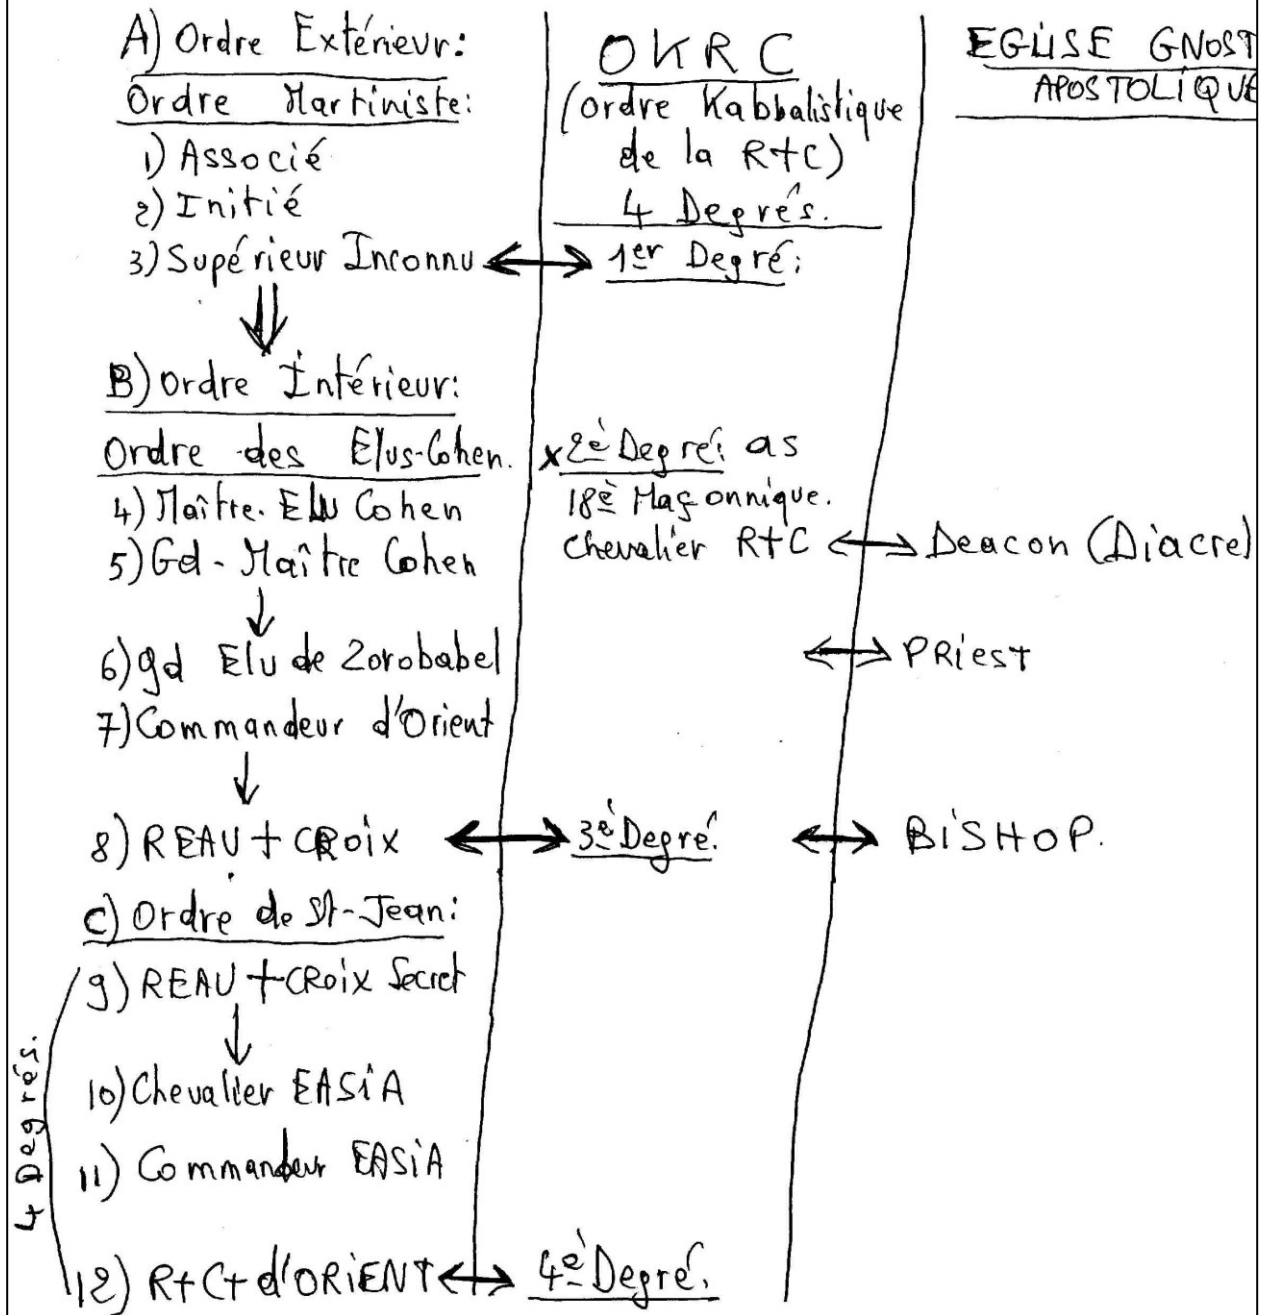 A) Ordre Extérieur:
Ordre Martiniste:
1) Associé
2) Initié
3) Supérieur Inconnu
B) Ordre Intérieur:
Ordre des Elus-Cohen.
4) Maître. Elu Cohen
5) Gd-Maître Cohen
6) gd Elu de Zorobabel
7) Commandeur d'Orient
8) REAU + CROIX
C) Ordre de St-Jean:
4 Degrés.
9) REAU + CROIX Secret
10) Chevalier EASIA
11) Commandeur EASIA
12) R+C+ d'ORIENT
OKRC
(Ordre Kabbalistique
de la R+C)
4 Degrés.
1er Degré:
x 2è Degré: as
18è Maçonnique.
Chevalier R+C
3è Degré.
4è Degré.
EGLISE GNOST
APOSTOLIQUE
Deacon (Diacre)
PRIEST
BISHOP.